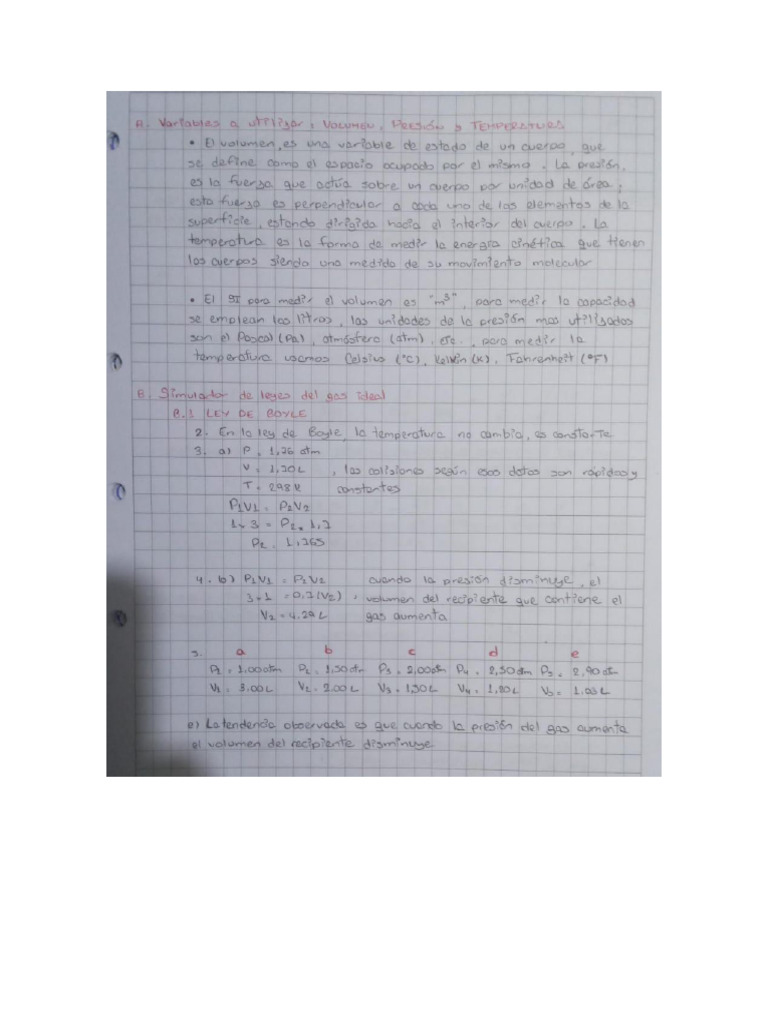 A. Variables a utilizar: Volumen, Presión y Temperatura
• El volumen, es una variable de estado de un cuerpo, que
se define como el espacio ocupado por el mismo. La presión,
es la fuerza que actúa sobre un cuerpo por unidad de área;
esta fuerza es perpendicular a cada uno de los elementos de la
superficie, estando dirigida hacia el interior del cuerpo. La
temperatura es la forma de medir la energía cinética que tienen
los cuerpos siendo una medida de su movimiento molecular
• El SI para medir el volumen es "m³", para medir la capacidad
se emplean los litros, las unidades de la presión mas utilizados
son el Pascal (Pa), atmósfera (atm), etc., para medir la
temperatura usamos Celsius (°C), Kelvin (K), Fahrenheit (°F)
B. Simulador de leyes del gas ideal
B.1 LEY DE BOYLE
2. En la ley de Boyle, la temperatura no cambia, es constante
3. a) P = 1,26 atm
V = 1,20 L , las colisiones según esos datos son rápidas y
T = 298 K constantes
P1V1 = P2V2
P2 = 1,265
4. b) P1V1 = P2V2 cuando la presión disminuye, el
3 * 1 = 0.7 (V2) , volumen del recipiente que contiene el
V2 = 4.29 L gas aumenta
5. a b c d e
P1 = 1.00 atm P2 = 1,50 atm P3 = 2,00 atm P4 = 2,50 atm P5 = 2,90 atm
V1 = 3.00 L V2 = 2.00 L V3 = 1,50 L V4 = 1,20 L V5 = 1.03 L
e) La tendencia observada es que cuando la presión del gas aumenta
el volumen del recipiente disminuye.